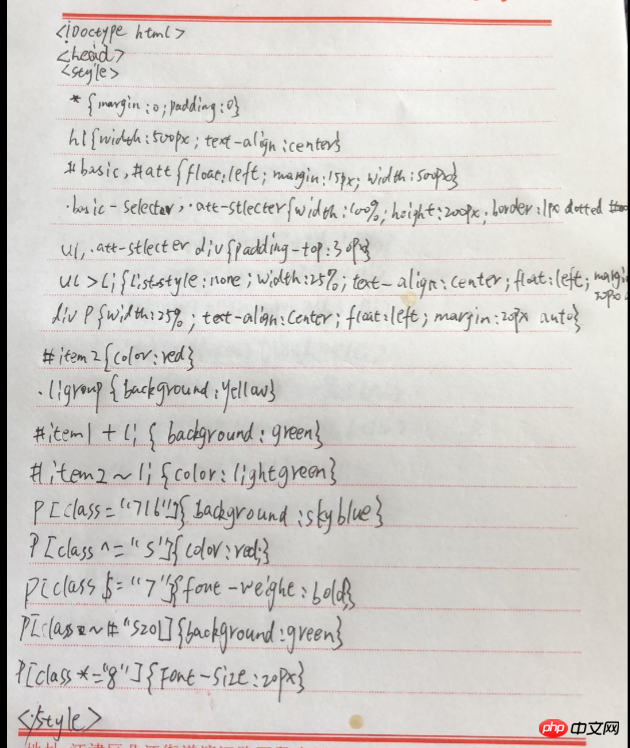 <!Doctype html>
<head>
<style>
* {margin:0;padding:0}
h1{width:500px; text-align:center}
#basic, #att{float:left; margin:15px; width:500px}
.basic-selecter, .att-stlecter{width:100%; height:200px; border:1px dotted
ul, .att-stlecter div{padding-top:30px}
ul>li{list-style:none; width:25%; text-align:center; float:left; margi
div p{width:25%; text-align:center; float:left; margin:20px auto}
#item2{color:red}
.ligroup{background:yellow}
#item1 + li { background:green}
#item2 ~ li {color:lightgreen}
p[class="716"]{ background:skyblue}
p[class ^= "S"]{color:red;}
p[class $= "7"]{font-weight:bold;}
"S201]{background:green}
p[class *="8"]{Font-Size:20px}
</style>
php 中文网